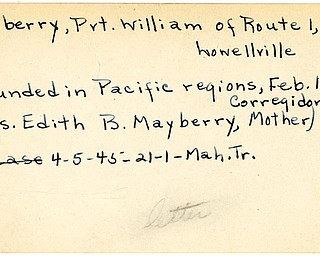 berry, Pvt. William of Route 1,
Lowellville
unded in Pacific regions, Feb. 1
Corregidor
s. Edith B. Mayberry, Mother)
ase 4-5-45-21-1-Mah. Tr.
letter